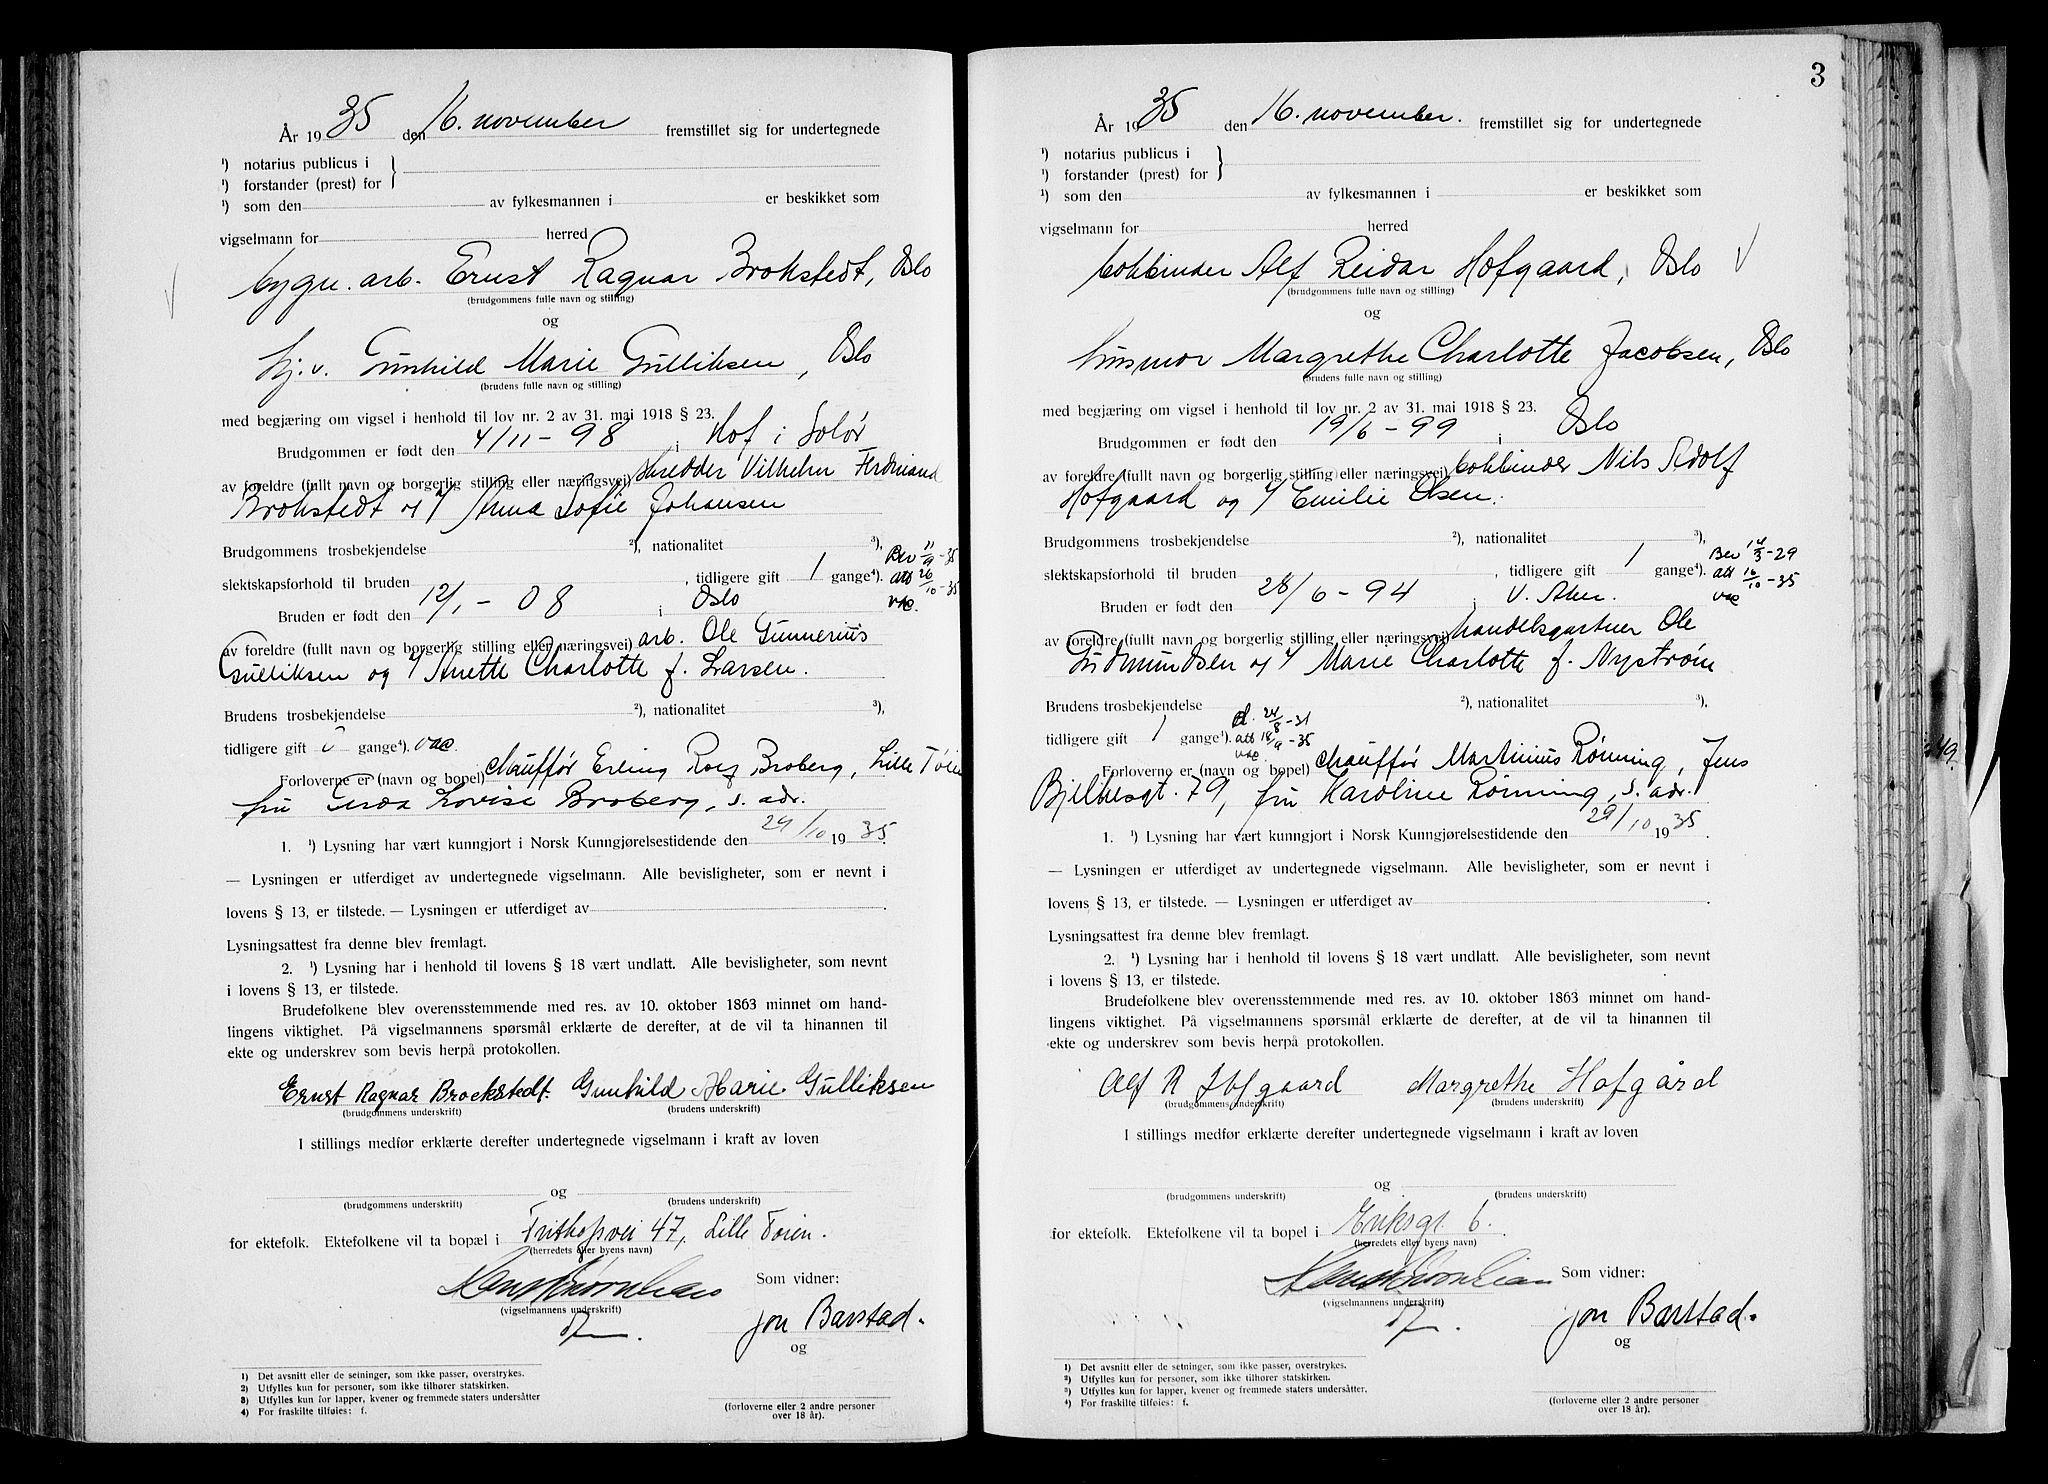 År 1935 den 16. november fremstillet sig for undertegnede
¹) notarius publicus i
¹) forstander (prest) for
¹) som den av fylkesmannen i er beskikket som
vigselmann for herred
bygn. arb. Ernst Ragnar Brokstedt, Oslo
(brudgommens fulle navn og stilling)
og
hj.v. Gunhild Marie Gulliksen, Oslo
(brudens fulle navn og stilling)
med begjæring om vigsel i henhold til lov nr. 2 av 31. mai 1918 § 23.
Brudgommen er født den 4/11-98 i Hof i Solør
av foreldre (fullt navn og borgerlig stilling eller næringsvei) skredder Vilhelm Ferdinand
Brokstedt og h Anna Sofie Johansen
Brudgommens trosbekjendelse ²), nationalitet ³),
slektskapsforhold til bruden , tidligere gift 1 gange⁴). Bev 11/9-35 att 26/10-35 vac.
Bruden er født den 12/1-08 i Oslo
av foreldre (fullt navn og borgerlig stilling eller næringsvei) arb. Ole Gunnerius
Gulliksen og h Anette Charlotte f. Larsen.
Brudens trosbekjendelse ²), nationalitet ³),
tidligere gift gange⁴). vac.
Forloverne er (navn og bopel) chauffør Erling Rolf Broberg, Lille Tøien
fru Lovise Broberg, s. adr.
1. ¹) Lysning har vært kunngjort i Norsk Kunngjørelsestidende den 24/10 1935.
— Lysningen er utferdiget av undertegnede vigselmann. Alle bevisligheter, som er nevnt i
lovens § 13, er tilstede. — Lysningen er utferdiget av
Lysningsattest fra denne blev fremlagt.
2. ¹) Lysning har i henhold til lovens § 18 vært undlatt. Alle bevisligheter, som nevnt
i lovens § 13, er tilstede.
Brudefolkene blev overensstemmende med res. av 10. oktober 1863 minnet om hand-
lingens viktighet. På vigselmannens spørsmål erklærte de derefter, at de vil ta hinannen til
ekte og underskrev som bevis herpå protokollen.
Ernst Ragnar Brockstedt. Gunhild Marie Gulliksen
(brudgommens underskrift) (brudens underskrift)
I stillings medfør erklærte derefter undertegnede vigselmann i kraft av loven
og
(brudgommens underskrift) (brudens underskrift)
for ektefolk. Ektefolkene vil ta bopæl i Frithofsvei 47, Lille Tøien.
(herredets eller byens navn)
Som vidner:
(vigselmannens underskrift)
Jon Barstad.
og
1) Det avsnitt eller de setninger, som ikke passer, overstrykes.
2) Utfylles kun for personer, som ikke tilhører statskirken.
3) Utfylles kun for lapper, kvener og fremmede staters undersåtter
4) For fraskilte tilføies: f.
(forloverne eller 2 andre personer
over 18 år).
3
År 1935 den 16. november. fremstillet sig for undertegnede
¹) notarius publicus i
¹) forstander (prest) for
¹) som den av fylkesmannen i er beskikket som
vigselmann for herred
bokbinder Alf Reidar Hofgaard, Oslo
(brudgommens fulle navn og stilling)
og
husmor Margrethe Charlotte Jacobsen, Oslo
(brudens fulle navn og stilling)
med begjæring om vigsel i henhold til lov nr. 2 av 31. mai 1918 § 23.
Brudgommen er født den 19/6-99 i Oslo
av foreldre (fullt navn og borgerlig stilling eller næringsvei) bokbinder Nils Adolf
Hofgaard og h Emilie Olsen.
Brudgommens trosbekjendelse ²), nationalitet ³),
slektskapsforhold til bruden , tidligere gift 1 gange⁴). Bev 14/3-29 att 16/10-35 vac
Bruden er født den 28/6-94 i V. Aker.
av foreldre (fullt navn og borgerlig stilling eller næringsvei) handelsgartner Ole
Gudmundsen og h Marie Charlotte f. Nystrøm
Brudens trosbekjendelse ²), nationalitet ³),
tidligere gift 1 gange⁴). d. 24/8-31 att 18/9-35 vac.
Forloverne er (navn og bopel) chauffør Martinius Rønning, Jens
Bjelkesgt. 79, fru Karoline Rønning, s. adr.
1. ¹) Lysning har vært kunngjort i Norsk Kunngjørelsestidende den 29/10 1935.
— Lysningen er utferdiget av undertegnede vigselmann. Alle bevisligheter, som er nevnt i
lovens § 13, er tilstede. — Lysningen er utferdiget av
Lysningsattest fra denne blev fremlagt.
2. ¹) Lysning har i henhold til lovens § 18 vært undlatt. Alle bevisligheter, som nevnt
i lovens § 13, er tilstede.
Brudefolkene blev overensstemmende med res. av 10. oktober 1863 minnet om hand-
lingens viktighet. På vigselmannens spørsmål erklærte de derefter, at de vil ta hinannen til
ekte og underskrev som bevis herpå protokollen.
Alf R Hofgaard Margrethe Hofgård
(brudgommens underskrift) (brudens underskrift)
I stillings medfør erklærte derefter undertegnede vigselmann i kraft av loven
og
(brudgommens underskrift) (brudens underskrift)
for ektefolk. Ektefolkene vil ta bopel i Eriksgt. 6.
(herredets eller byens navn)
Som vidner:
(vigselmannens underskrift)
Jon Barstad.
og
1) Det avsnitt eller de setninger, som ikke passer, overstrykes.
2) Utfylles kun for personer, som ikke tilhører statskirken.
3) Utfylles kun for lapper, kvener og fremmede staters undersåtter.
4) For fraskilte tilføies: f.
(forloverne eller 2 andre personer
over 18 år).